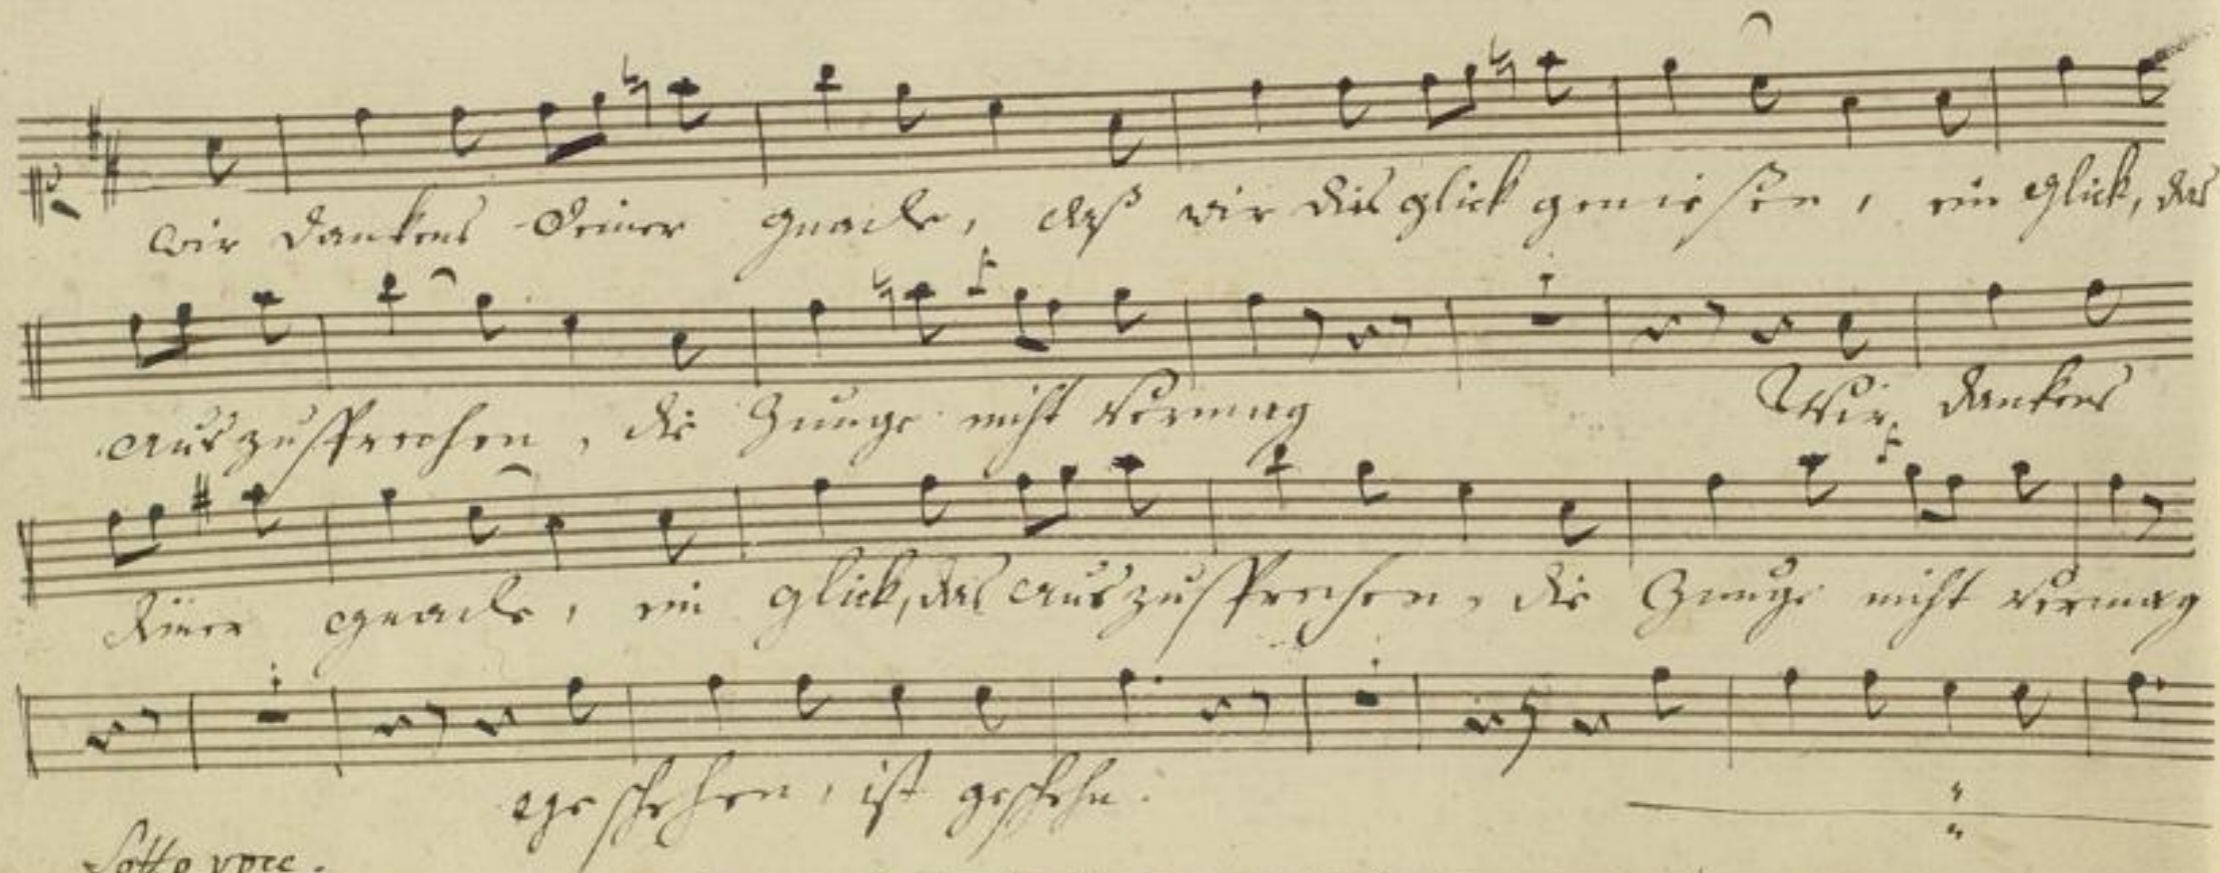 wir dankens deiner gnade, daß wir dis glick geniesen, ein glick, das
auszusprechen, die Zunge nicht vermag Wir dankens
deiner gnade, ein glick, das auszusprechen, die Zunge nicht vermag
geschehen, ist geschehn.
Sotto voce.